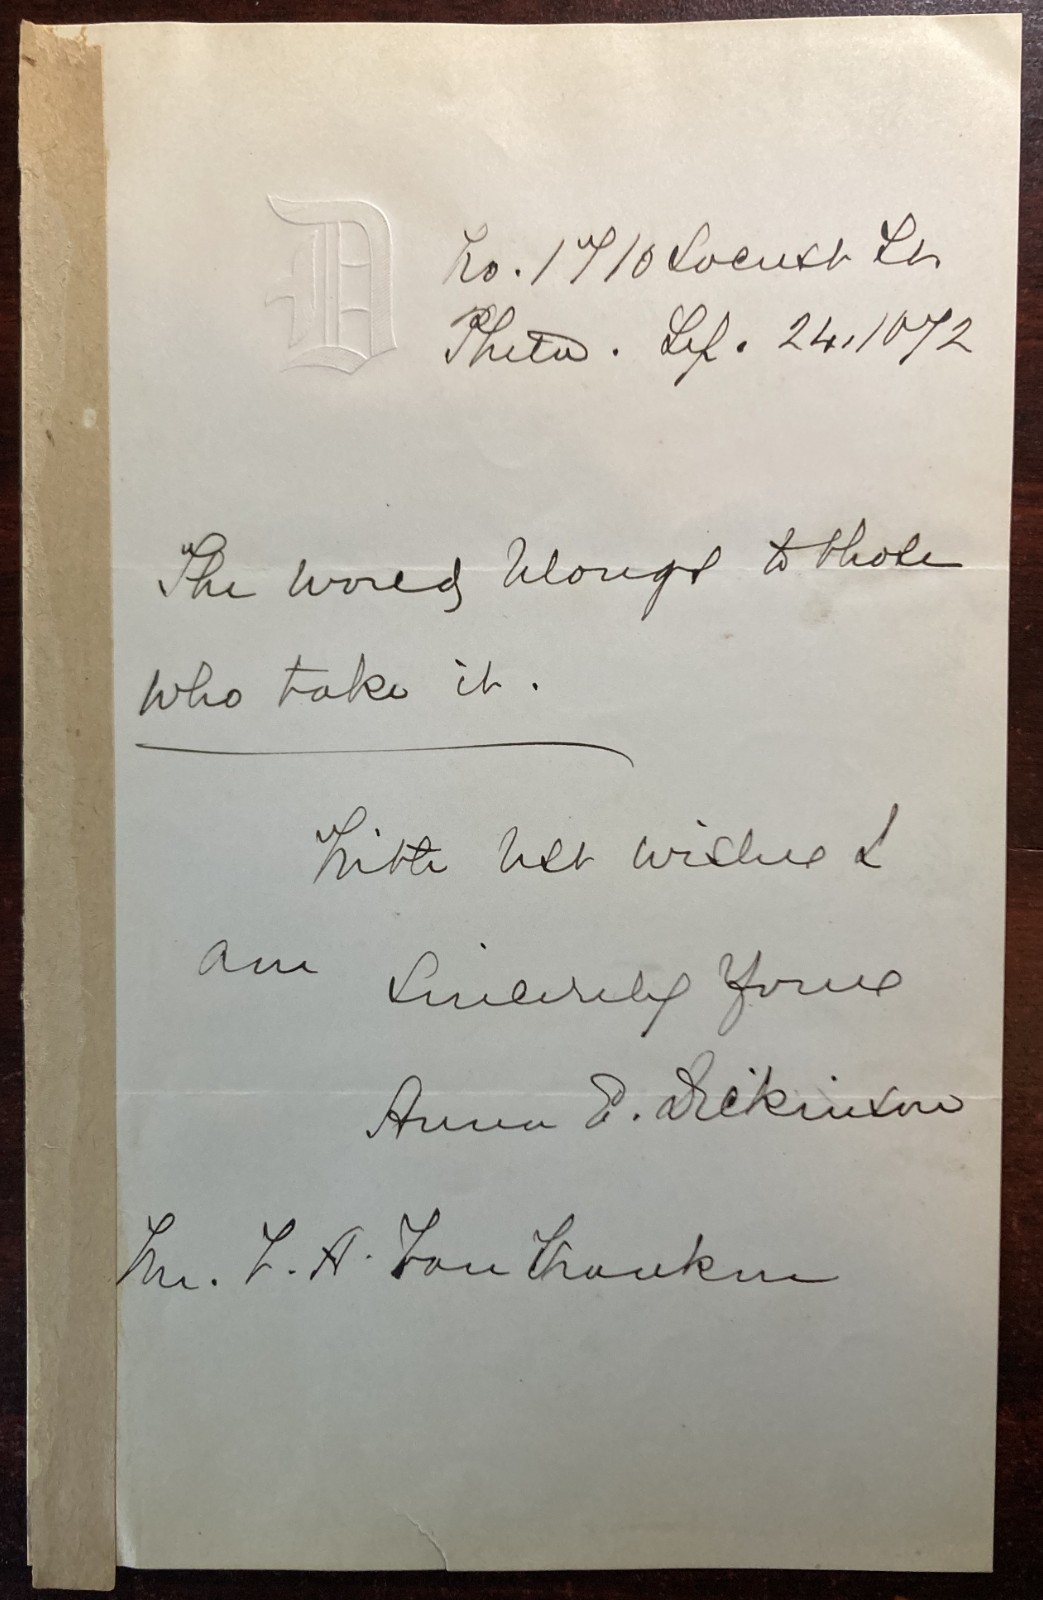 D
No. 1710 Locust St.
Phila. Sep. 24. 1872
The world belongs to those
who take it.
With best wishes I
am Sincerely Yours
Anna E. Dickinson
Mr. A. Van